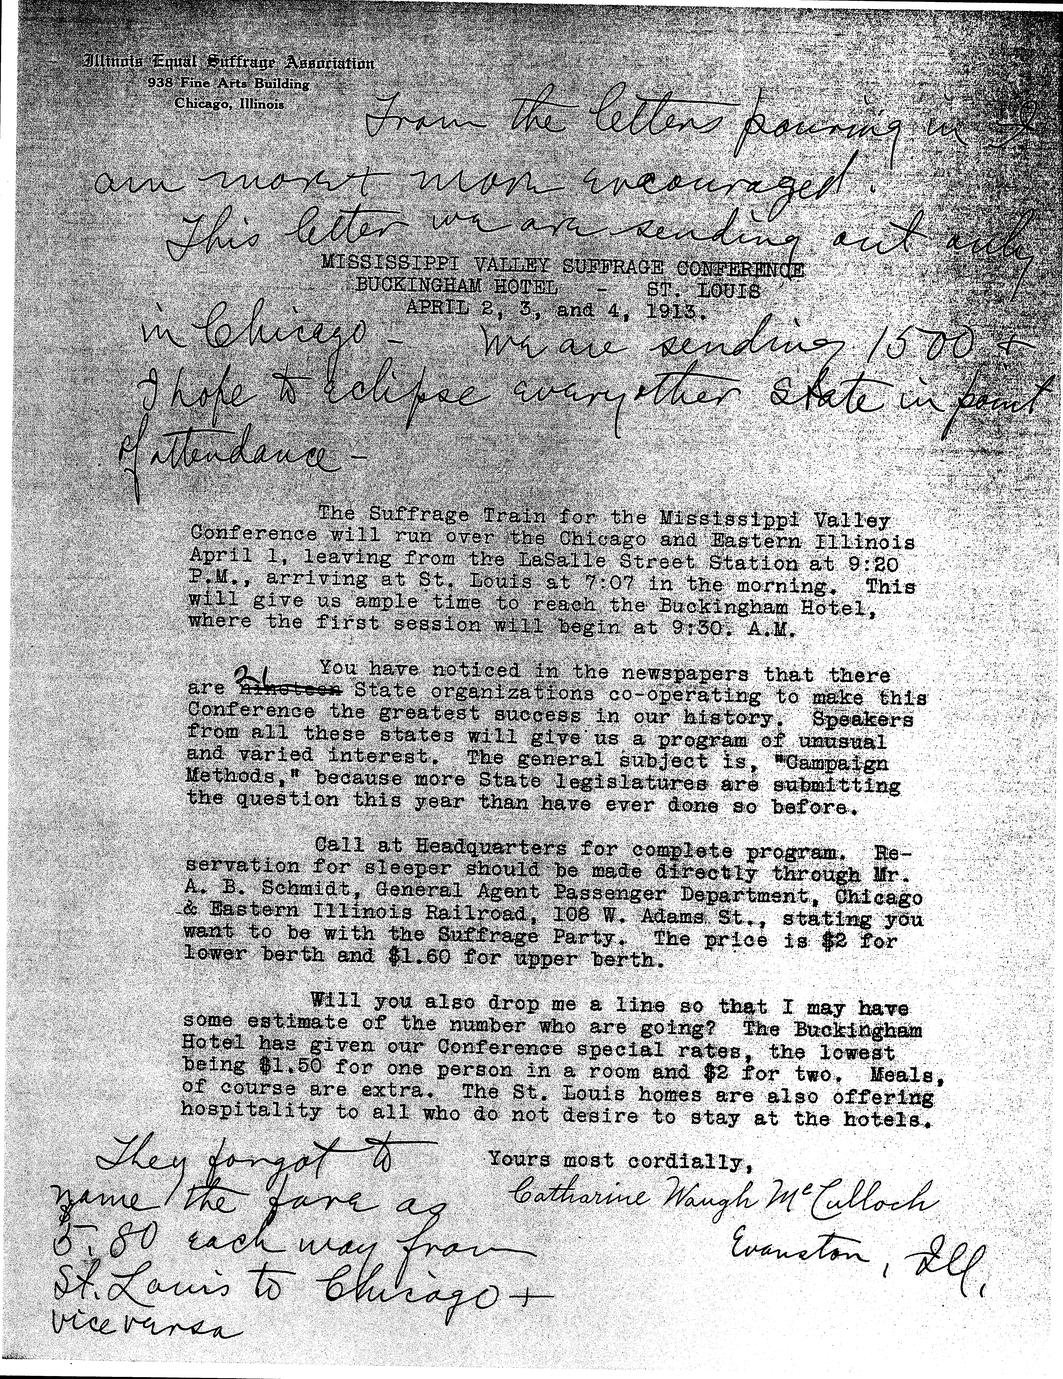 Illinois Equal Suffrage Association
938 Fine Arts Building
Chicago, Illinois
From the letters pouring in I
am more + more encouraged.
This letter we are sending out only
MISSISSIPPI VALLEY SUFFRAGE CONFERENCE
BUCKINGHAM HOTEL - ST. LOUIS
APRIL 2, 3, and 4, 1913.
in Chicago - We are sending 1500 +
I hope to eclipse every other State in point
of attendance -
The Suffrage Train for the Mississippi Valley
Conference will run over the Chicago and Eastern Illinois
April 1, leaving from the LaSalle Street Station at 9:20
P.M., arriving at St. Louis at 7:07 in the morning. This
will give us ample time to reach the Buckingham Hotel,
where the first session will begin at 9:30. A.M.
You have noticed in the newspapers that there
21
are nineteen State organizations co-operating to make this
Conference the greatest success in our history. Speakers
from all these states will give us a program of unusual
and varied interest. The general subject is, "Campaign
Methods," because more State legislatures are submitting
the question this year than have ever done so before.
Call at Headquarters for complete program. Re-
servation for sleeper should be made directly through Mr.
A. B. Schmidt, General Agent Passenger Department, Chicago
& Eastern Illinois Railroad, 108 W. Adams St., stating you
want to be with the Suffrage Party. The price is $2 for
lower berth and $1.60 for upper berth.
Will you also drop me a line so that I may have
some estimate of the number who are going? The Buckingham
Hotel has given our Conference special rates, the lowest
being $1.50 for one person in a room and $2 for two. Meals,
of course are extra. The St. Louis homes are also offering
hospitality to all who do not desire to stay at the hotels.
Yours most cordially,
Catharine Waugh McCulloch
Evanston, Ill.
They forgot to
name the fare as
$5.80 each way from
St. Louis to Chicago +
vice versa